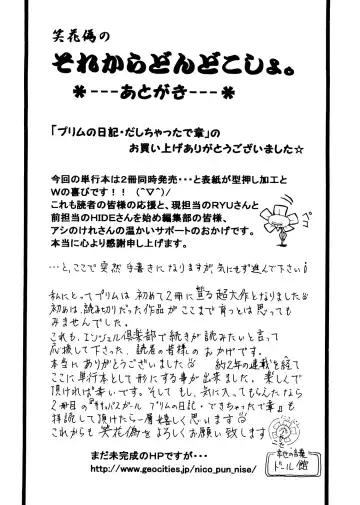 笑花偽の
それからどんどこしょ。
*---あとがき---*
「プリムの日記・だしちゃったで章」の
お買い上げありがとうございました☆
今回の単行本は2冊同時発売・・・と表紙が型押し加工と
Wの喜びです！！（^▽^)/
これも読者の皆様の応援と、現担当のRYUさんと
前担当のHIDEさんを始め編集部の皆様、
アシのけれさんの温かいサポートのおかげです。
本当に心より感謝申し上げます。
ペコ
…と、ここで突然手書きになりますが気にせず進んで下さい
私にとってプリムは初めて2冊に至る超大作となりました
初めは、読み切りだった作品がここまで育つとは思っても
みませんでした。
これも、エンジェル倶楽部で続きが読みたいと言って
応援して下さった、読者の皆様のおかげです。
本当にありがとうございました 約2年の連載を経て
ここに単行本として形にする事が出来ました。楽しんで
頂ければ幸いです。そしてもし、気に入ってもらえたなら
2冊目の プリムの日記・できちゃったで章』も
拝読して頂けたら一層嬉しく思います
これからも笑花偽をよろしくお願い致します
まだ未完成のHPですが・・・
http://www.geocities.jp/nico_pun_nise/